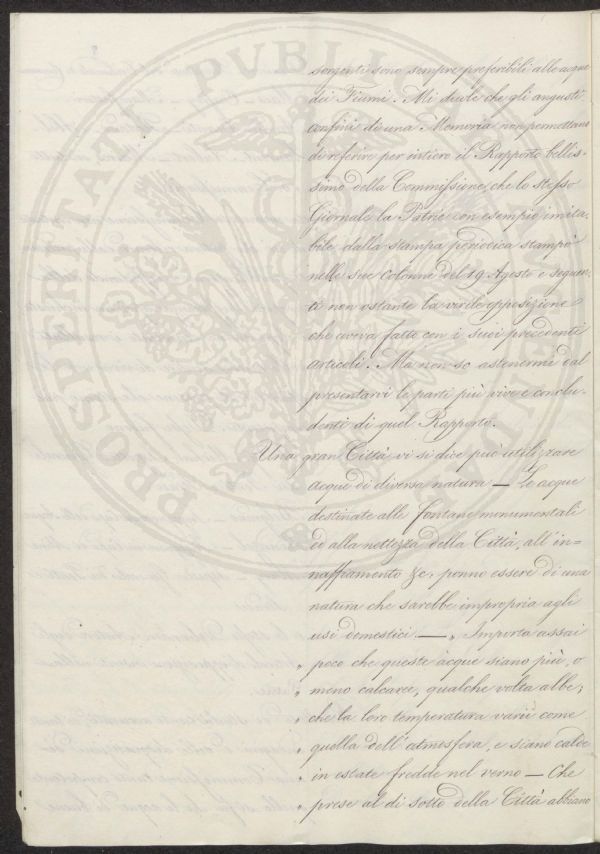 sorgenti sono sempre preferibili alle acque
dei Fiumi. Mi duole che gli angusti
confini di una Memoria non permettano
di referire per intiero il Rapporto bellis-
simo della Commissione, che lo stesso
Giornale la Patrie con esempio imita-
bile dalla stampa periodica stampò
nelle sue colonne del 19 Agosto e seguen-
ti non ostante la virile opposizione
che aveva fatto con i suoi precedenti
articoli. Ma non so astenermi dal
presentarvi le parti più vive e conclu-
denti di quel Rapporto.
Una gran Città vi si dice può utilizzare
acque di diversa natura — Le acque
destinate alle fontane monumentali
ed alla nettezza della Città, all'in=
naffiamento &c, ponno essere di una
natura che sarebbe impropria agli
usi domestici — „ Importa assai
„ poco che queste acque siano più, o
„ meno calcaree, qualche volta albe;
„ che la loro temperatura varii come
„ quella dell'atmosfera, e siano calde
„ in estate fredde nel verno — Che
„ prese al di sotto della Città abbiano
PROSPERITATI PVBLICAE